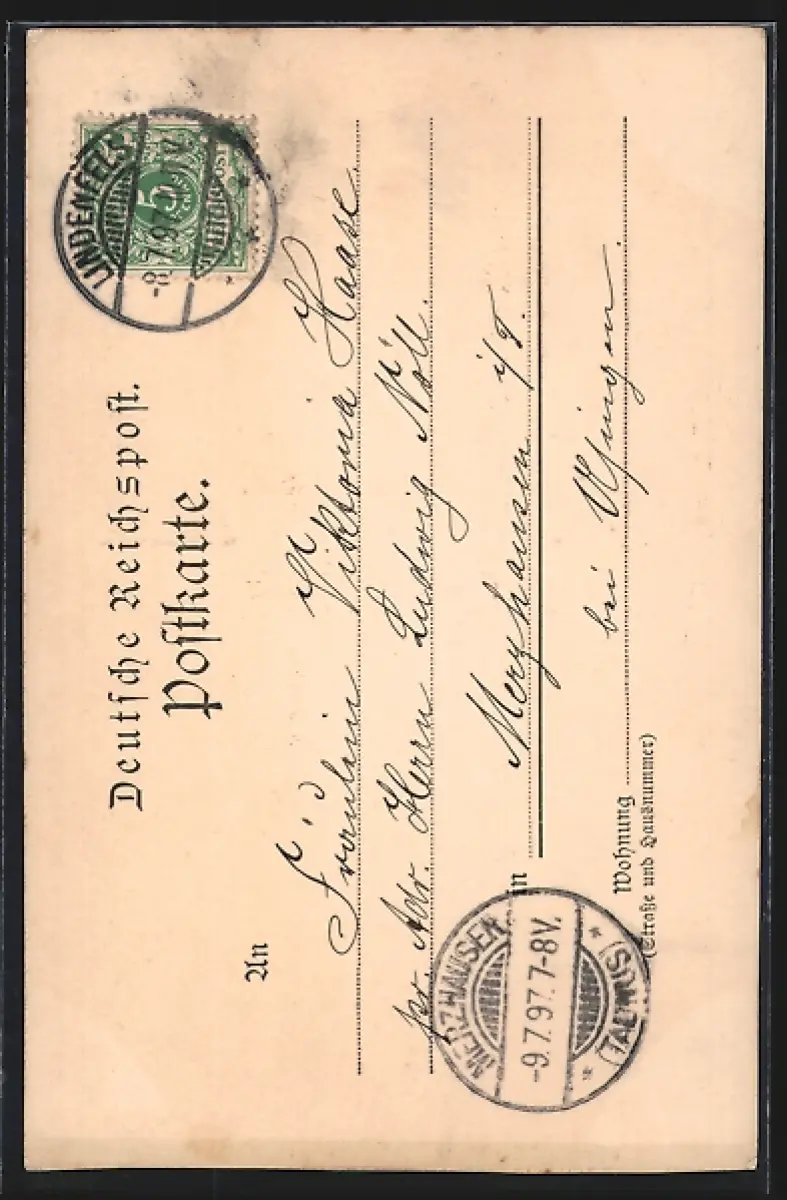 Deutsche Reichspost.
Postkarte.
LINDENFELS
-8.7.97.
V.
5
An
Fräulein Viktoria Haase.
pr. Adr. Herrn Ludwig Nöll.
in Merzhausen i/T.
bei Usingen.
Wohnung
(Straße und Hausnummer)
MERZHAUSEN
-9.7.97.7-8V.
(TAUNUS)